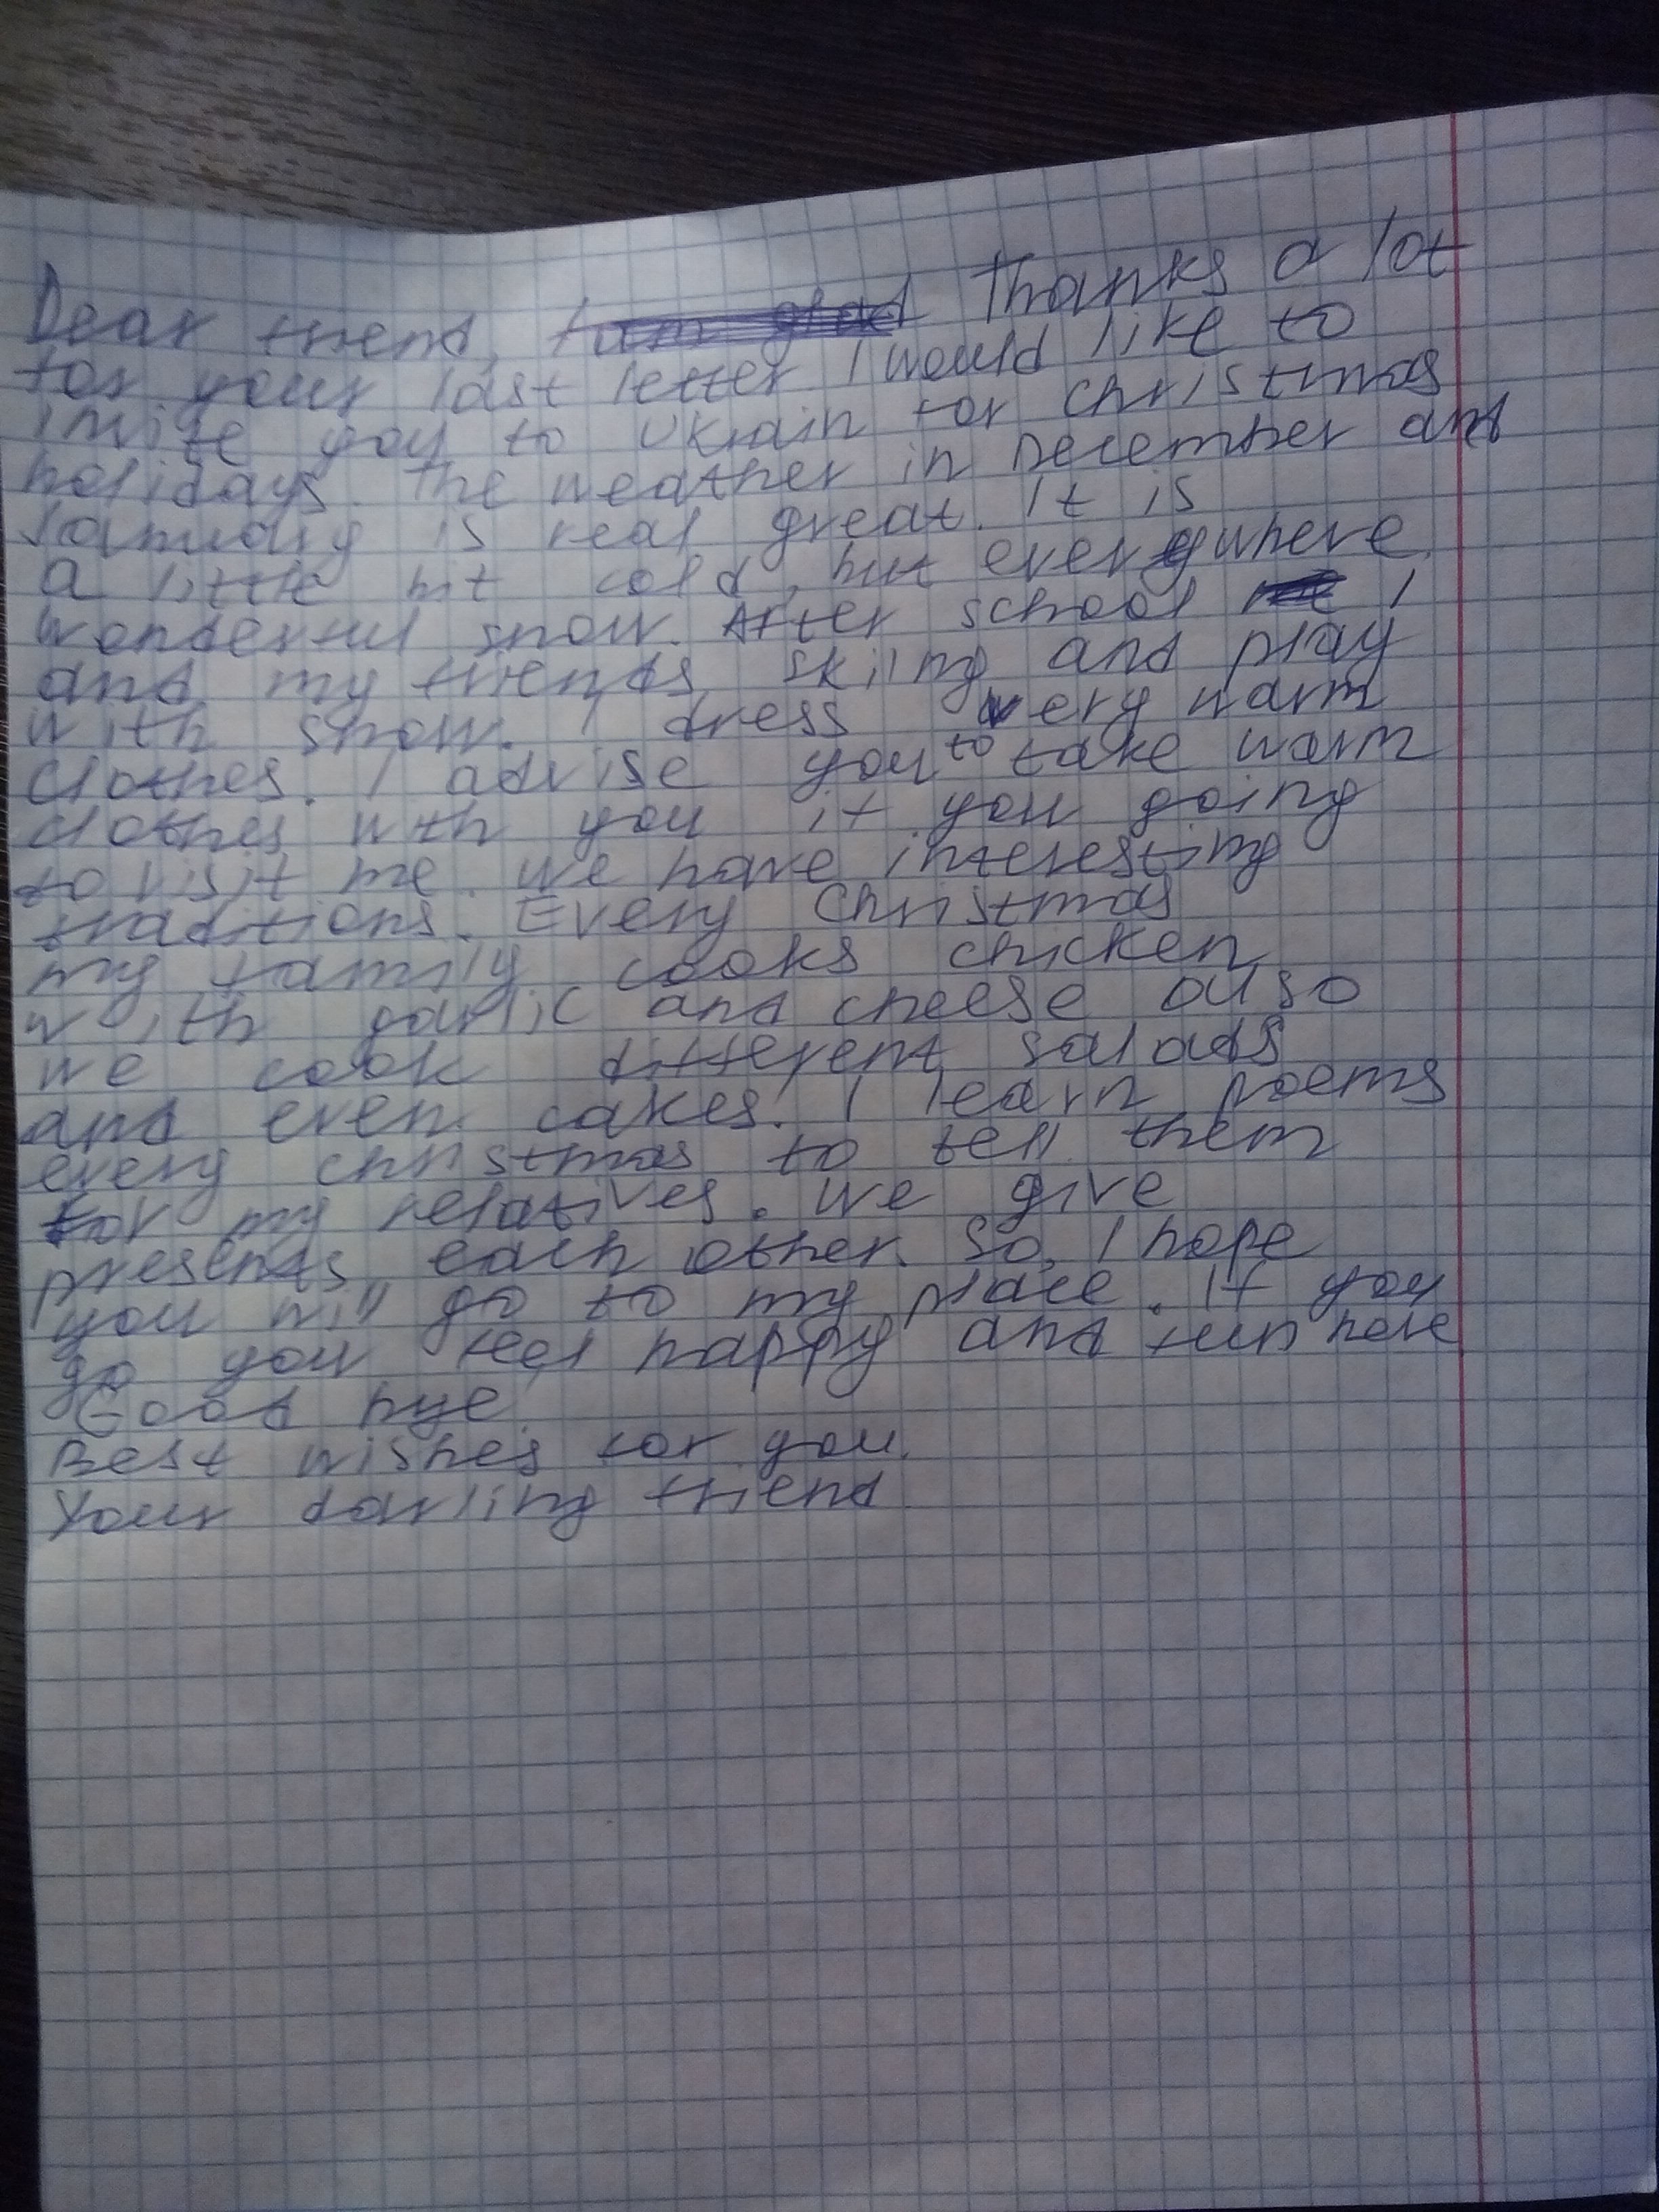 Dear friend, Thanks a lot
for your last letter. I would like to
invite you to Ukrain for Christmas
holidays. The weather in December and
January is real great. It is
a little bit cold, but everywhere
wonderful snow. After school I
and my friends skiing and play
with snow. I dress very warm
clothes. I advise you to take warm
clothes with you if you going
to visit me. We have interesting
traditions. Every Christmas
my family cooks chicken
with garlic and cheese also
we cook different salads
and even cakes. I learn poems
every christmas to tell them
for my relatives. We give
presents each other. So, I hope
you will go to my place. If you
go you feel happy and fun here
Good bye.
Best wishes for you.
Your darling friend